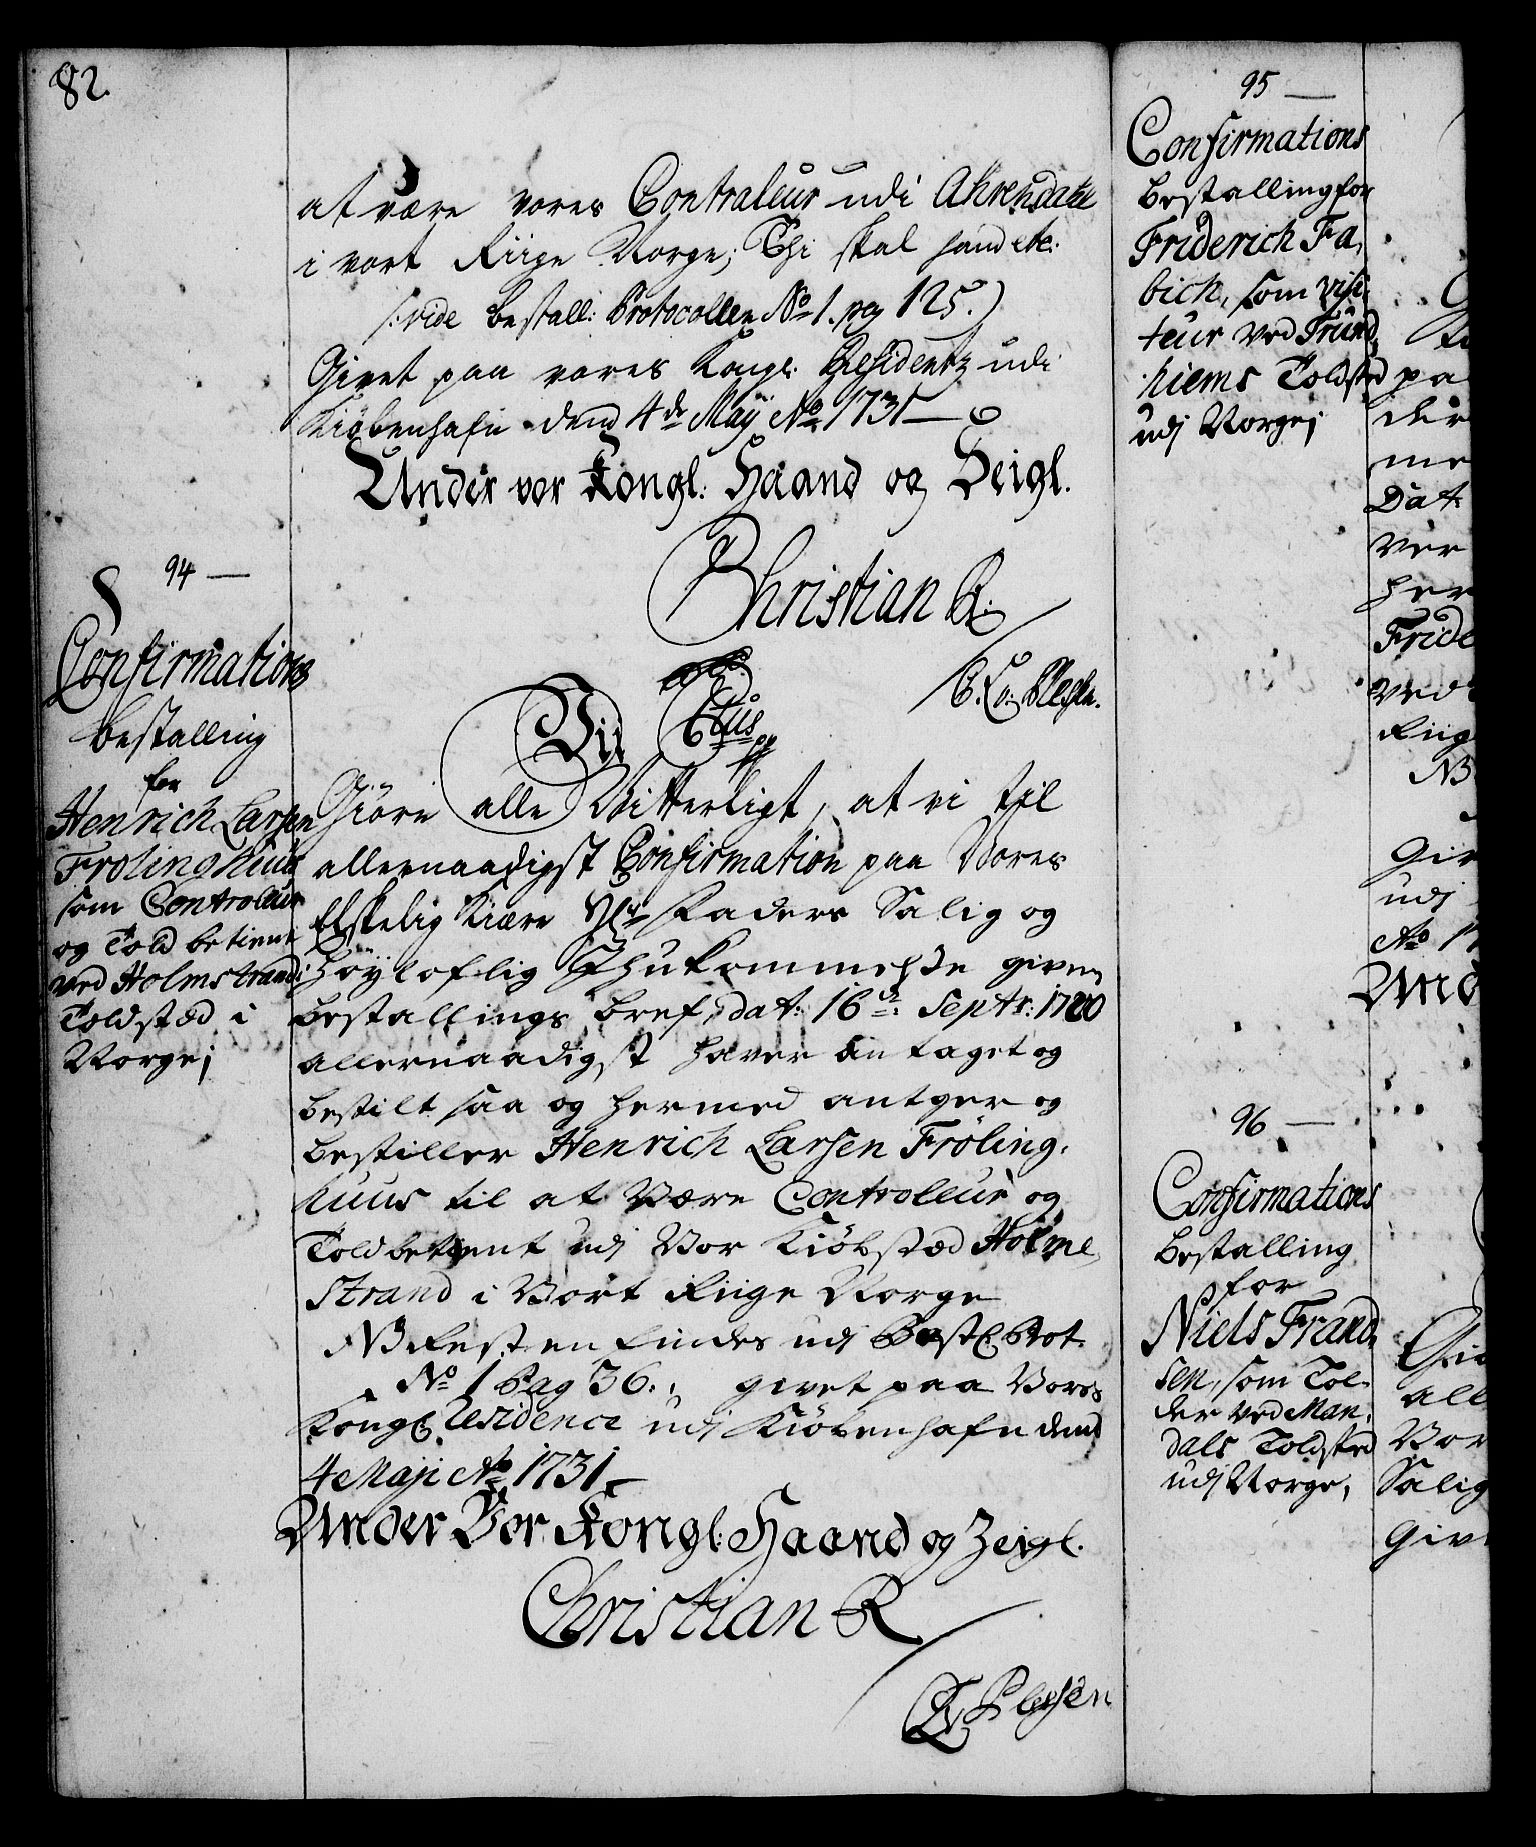 82.
at være vores Contraleur udi Ahrendahl
i vort Riige Norge; Thi skal hand etc:
/: vide bestall: Protocollen No 1. pag 125.)
Givet paa vores Kongl: Residentz udi
Kiöbenhafn dend 4de Maÿ Ao 1731
Under vor Kongl: Haand og Seigl.
Christian R:
94
Confirmations
bestalling
for
Henrich Larsen
Frolinghuus
som Controlleur
og Told betient
ved Holmstrands
Toldstæd i
Norge;
Vii
Giöre alle Vitterligt, at vi til
allernaadigst Confirmation paa Vores
Elskelig Kiære Hr Faders Salig og
Höÿloflig Ihukommelse given
bestallings bref, dat: 16de Septr: 1720
allernaadigst haver antaget og
bestilt saa og hermed antager og
bestiller Henrich Larsen Fröling-
huus til at Være Controlleur og
Toldbetient udj Vor Kiöbstæd Holme-
strand i Vort Riige Norge
NB Resten findes udj Bestl Prot.
No 1 Pag 36. givet paa Vores
Kongl Residence udj Kiöbenhafn dend
4 Maji Ao 1731
Under Vor Kongl: Haand og Zeigl.
Christian R
Plessen
95
Confirmations
bestalling for
Friderich Fa-
bich, som visi-
teur ved Trund-
hiems Toldsted
udj Norge;
96
Confirmations
bestalling
for
Niels Frand-
sen, som Tol-
der ved Man-
dals Toldsted
udj Norge,
pa
der
me
Dat
ver
her
Fride
ved
Riig
NB
Giv
udj
Ao 17
Und
Giö
all
Vor
Salig
Giv